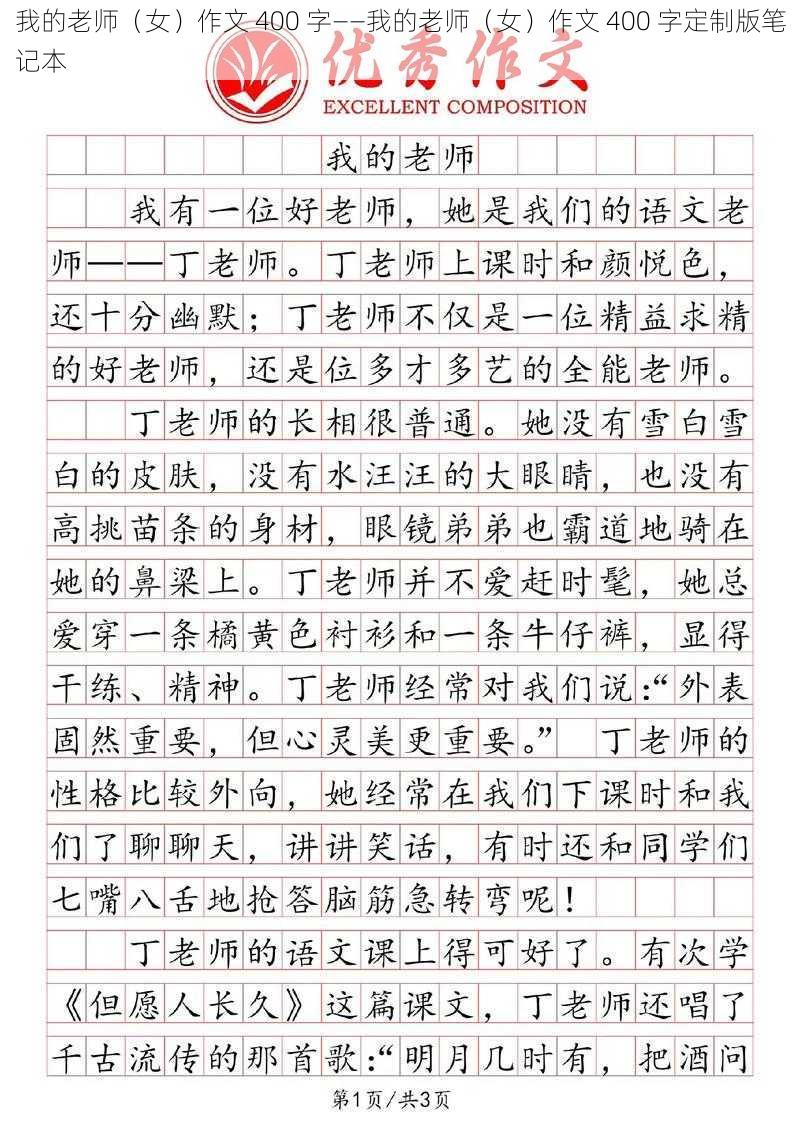 我的老师（女）作文 400 字——我的老师（女）作文 400 字定制版笔
记本
优秀作文
EXCELLENT COMPOSITION
我的老师
我有一位好老师，她是我们的语文老
师——丁老师。丁老师上课时和颜悦色，
还十分幽默；丁老师不仅是一位精益求精
的好老师，还是位多才多艺的全能老师。
丁老师的长相很普通。她没有雪白雪
白的皮肤，没有水汪汪的大眼睛，也没有
高挑苗条的身材，眼镜弟弟也霸道地骑在
她的鼻梁上。丁老师并不爱赶时髦，她总
爱穿一条橘黄色衬衫和一条牛仔裤，显得
干练、精神。丁老师经常对我们说：“外表
固然重要，但心灵美更重要。” 丁老师的
性格比较外向，她经常在我们下课时和我
们了聊聊天，讲讲笑话，有时还和同学们
七嘴八舌地抢答脑筋急转弯呢！
丁老师的语文课上得可好了。有次学
《但愿人长久》这篇课文，丁老师还唱了
千古流传的那首歌：“明月几时有，把酒问
第1页/共3页